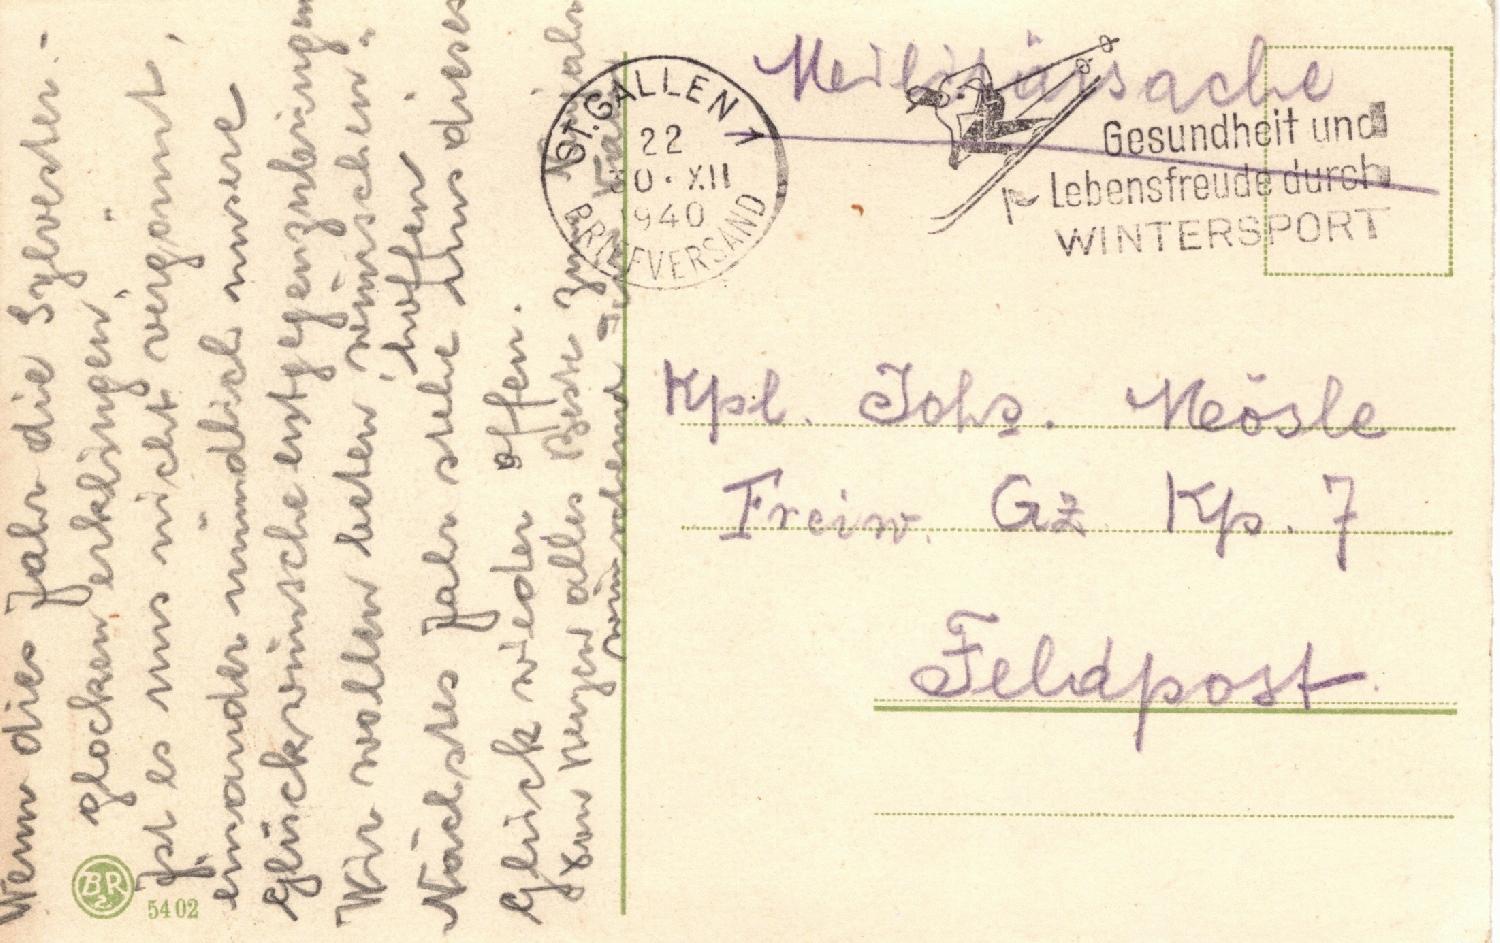 Wenn dies Jahr die Sylvester-
glocken erklingen,
Ist es uns nicht vergonnt,
einander mündlich unsere
Glückwünsche entgegenzubringen
Wir wollen beten, wünschen,
hoffen
Nächstes Jahr stehe uns dieses
Glück wieder offen.
Von Herzen alles Beste zum Neujahr
wünschend
BR
54 02
ST. GALLEN 1
22
30. XII
1940
BRIEFVERSAND
Gesundheit und
Lebensfreude durch
WINTERSPORT
Meilitärsache
Kpl. Johs. Mösle
Freiw. Gz Kp. 7
Feldpost.